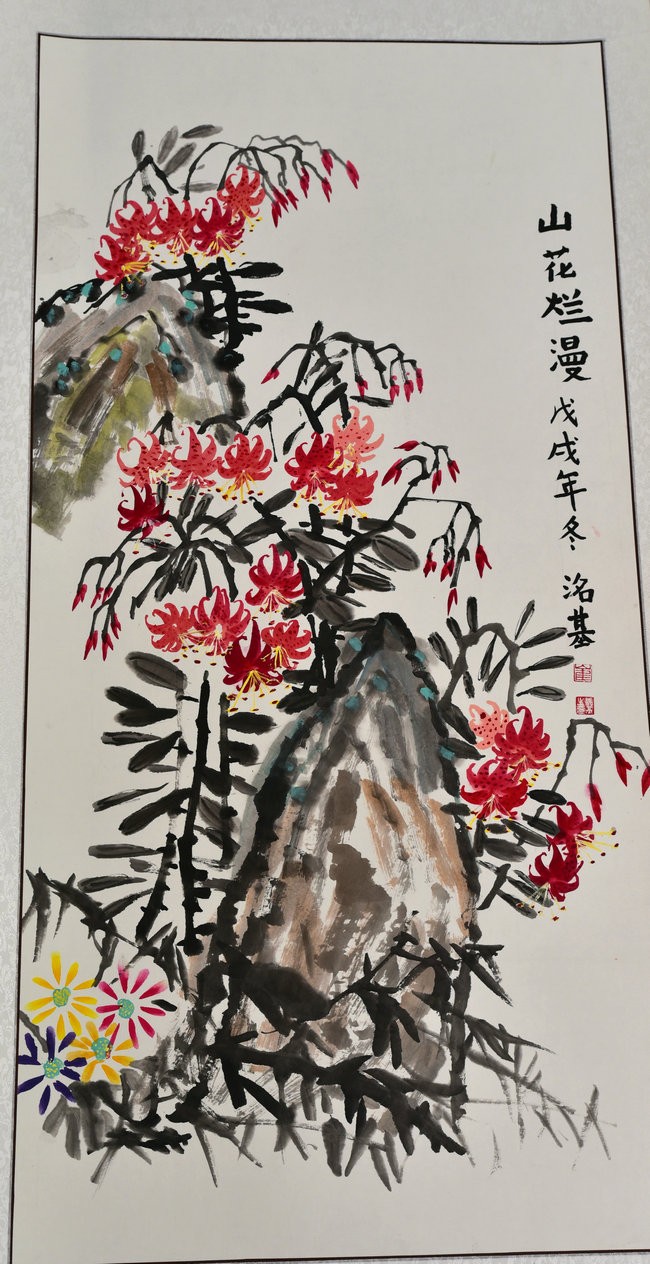 山花烂漫 戊戌年冬 洺基